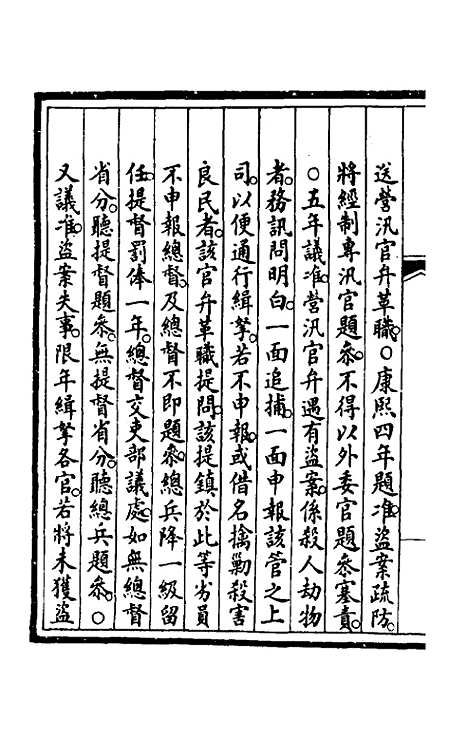 送營汛官弁革職。○康熙四年題准。盜案疏防。
將經制專汛官題參。不得以外委官題參塞責。
○五年議准。營汛官弁遇有盜案。係殺人劫物
者。務訊問明白。一面追捕。一面申報該管之上
司。以便通行緝拏。若不申報。或借名擒勦殺害
良民者。該官弁革職提問。該提鎮於此等劣員
不申報總督。及總督不即題參。總兵降一級留
任。提督罰俸一年。總督交吏部議處。如無總督
省分。聽提督題參。無提督省分。聽總兵題參。○
又議准。盜案失事。限年緝拏各官。若將未獲盜